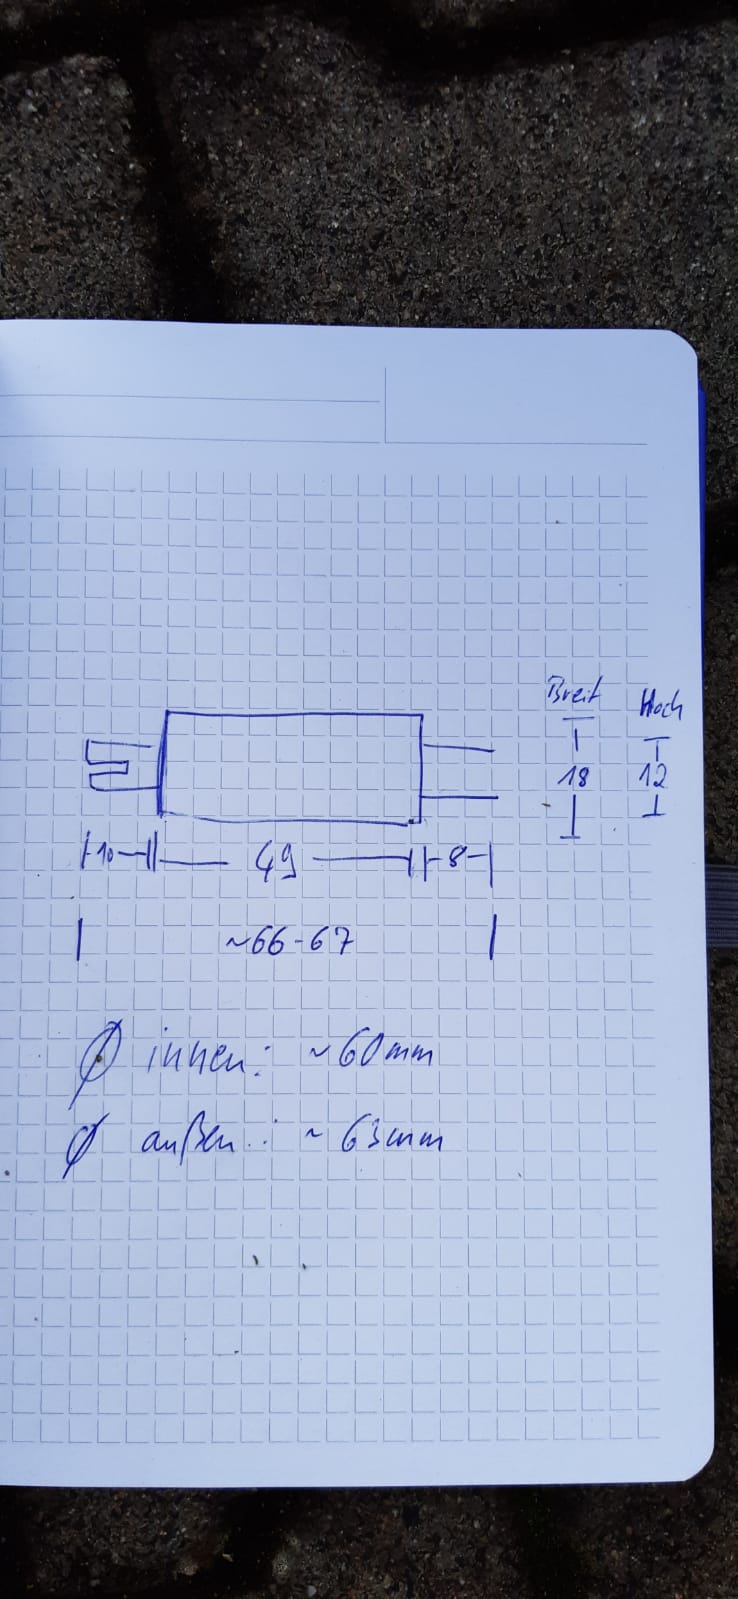 Breit Hoch
18 12
10 49 8
~66-67
Ø innen: ~60mm
Ø außen: ~63mm